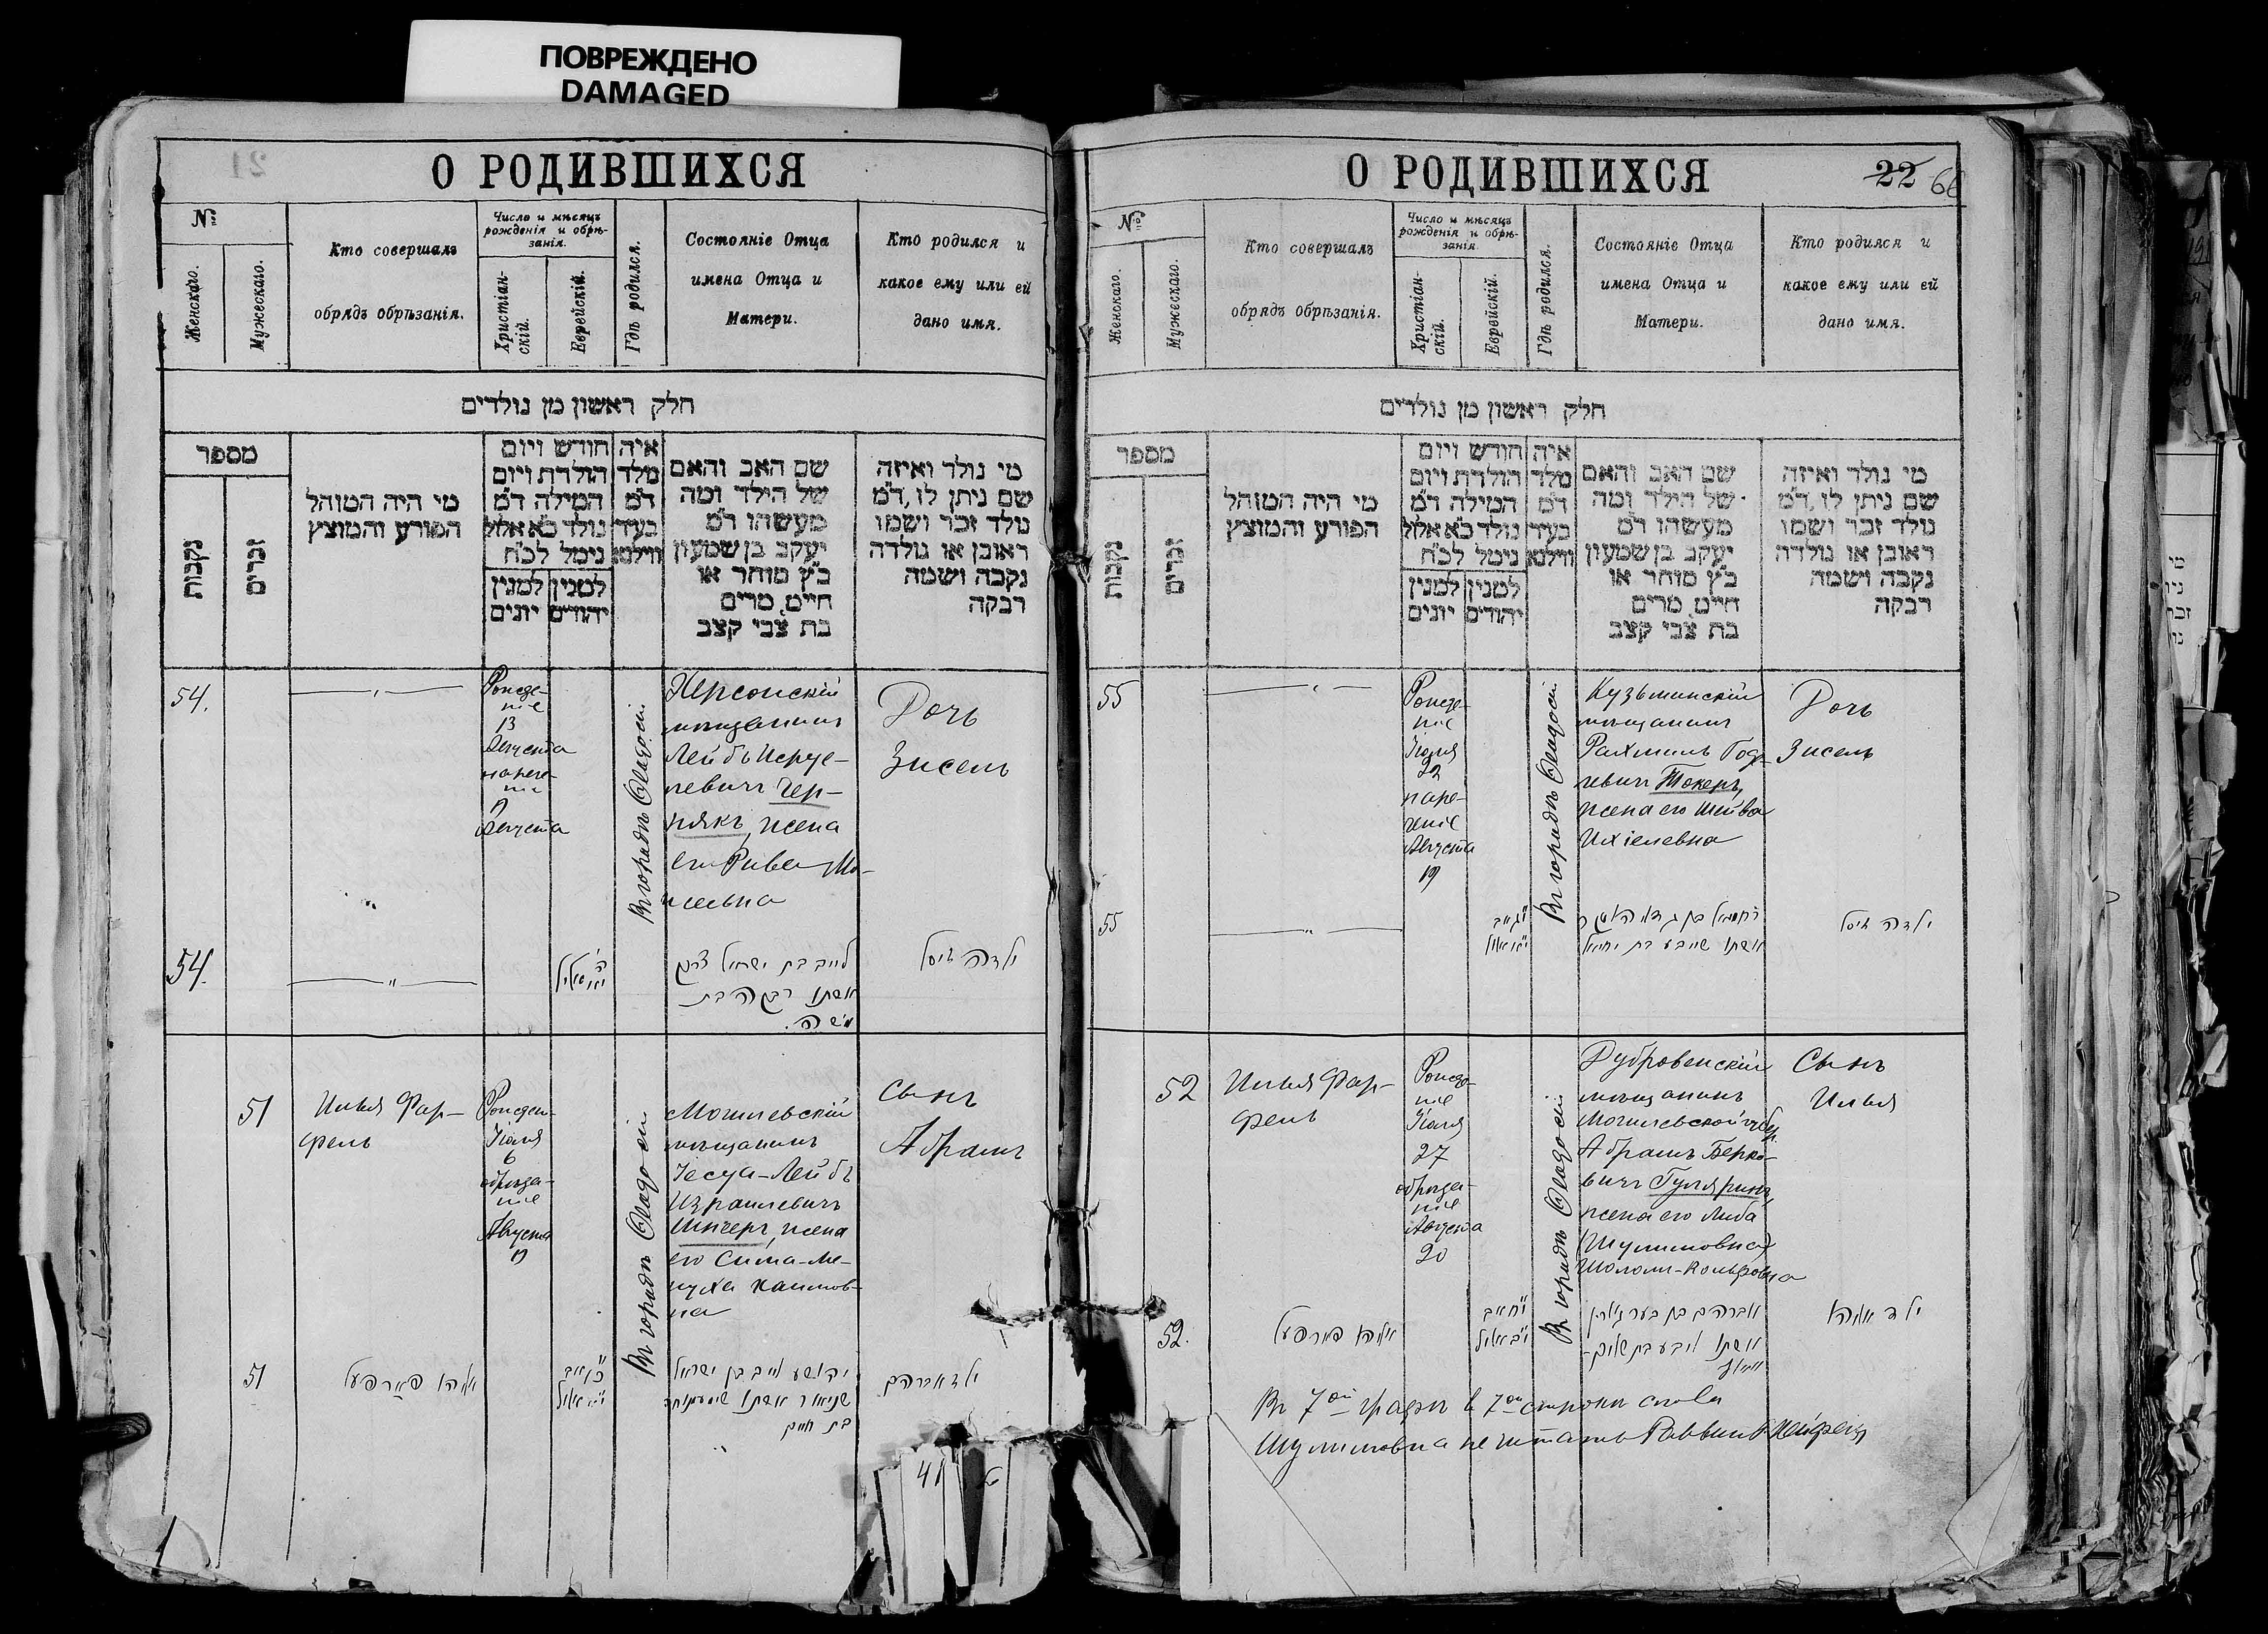 ПОВРЕЖДЕНО
DAMAGED
21
О РОДИВШИХСЯ
№
Женскаго.
Мужескаго.
Кто совершалъ
обрядъ обрѣзанія.
Число и мѣсяцъ
рожденія и обрѣ-
занія.
Христіан-
скій.
Еврейскій.
Гдѣ родился.
Состояніе Отца
имена Отца и
Матери.
Кто родился и
какое ему или ей
дано имя.
חלק ראשון מן נולדים
מספר
נקבות
זכרים
מי היה המוהל
הפורע והמוצץ
חודש ויום
הולדת ויום
המילה ד״מ
נולד כ״א אלול
נימל לכ״ח
למנין למנין
יהודים יונים
איה
מלד
ד״מ
בעיר
ווילנא
שם האב והאם
של הילד ומה
מעשהו ד״מ
יעקב בן שמעון
כ״ץ סוחר או
חיים, מרים
בת צבי קצב
מי נולד ואיזה
שם ניתן לו, ד״מ
נולד זכר ושמו
ראובן או נולדה
נקבה ושמה
רבקה
54.
Рожде-
ніе
13
Августа
нарече-
ніе
17
Августа
Въ городѣ Одессѣ
Херсонскій
мѣщанинъ
Лейбъ Исруе-
левичъ Чер-
някъ, жена
его Рива Мо-
исеевна
Дочь
Зисель
54.
לייב בת ישראל
אשתו רבקה בת
משה.
ילדה זיסל
51
Илья Фар-
фель
Рожден-
Іюля
6
обрѣза-
ніе
Августа
17
Въ городѣ Одессѣ
Могилевскій
мѣщанинъ
Іесуа-Лейбъ
Израилевичъ
Шнеръ, жена
его Сима-Ме-
нуха Хаимов-
на
Сынъ
Абрамъ
51
אליהו פארפעל
יהושע לייב בן ישראל
אשתו
בת חיים
ילד אברהם
О РОДИВШИХСЯ
22 66
№
Женскаго.
Мужескаго.
Кто совершалъ
обрядъ обрѣзанія.
Число и мѣсяцъ
рожденія и обрѣ-
занія.
Христіан-
скій.
Еврейскій.
Гдѣ родился.
Состояніе Отца
имена Отца и
Матери.
Кто родился и
какое ему или ей
дано имя.
חלק ראשון מן נולדים
מספר
נקבות
זכרים
מי היה המוהל
הפורע והמוצץ
חודש ויום
הולדת ויום
המילה ד״מ
נולד כ״א אלול
נימל לכ״ח
למנין למנין
יהודים יונים
איה
מלד
ד״מ
בעיר
ווילנא
שם האב והאם
של הילד ומה
מעשהו ד״מ
יעקב בן שמעון
כ״ץ סוחר או
חיים, מרים
בת צבי קצב
מי נולד ואיזה
שם ניתן לו, ד״מ
נולד זכר ושמו
ראובן או נולדה
נקבה ושמה
רבקה
55
Рожде-
ніе
Іюля
22
наре-
ченіе
Августа
19
Въ городѣ Одессѣ
Кузьминскій
мѣщанинъ
Рахмиль Год-
левичъ Токеръ,
жена его Шейва
Ихіелевна
Дочь
Зисель
55
אשתו שייבע בת יחיאל
ילדה זיסל
52
Илья Фар-
фель
Рожде-
ніе
Іюля
27
обрѣза-
ніе
Августа
20
Въ городѣ Одессѣ
Дубровенскій
мѣщанинъ
Могилевской губ.
Абрамъ Берко-
вичъ Гуляринъ,
жена его Либа
(Шулимовна)
Шоломъ-Вольфовна
Сынъ
Илья
52.
אליהו פארפעל
אברהם בן בער
אשתו ליבע בת שלום-
וואלף
ילד אליהו
Въ 7ой графѣ в 7ой строки слова
Шулимовна не читать Раввинъ